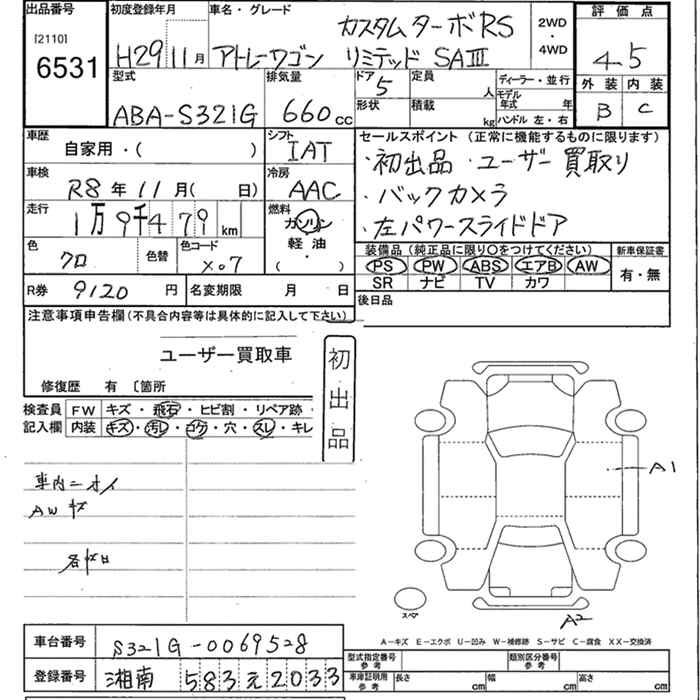 出品番号 初度登録年月 車名・グレード カスタムターボRS 2WD・4WD 評価点
[2110] 6531 H29 11月 アトレーワゴン リミテッド SAⅢ 4.5
型式 排気量 ドア 5 定員 人 ディーラー・並行 外装 内装
ABA-S321G 660cc 形状 積載 kg モデル年式 年 ハンドル 左・右 B C
車歴 シフト セールスポイント (正常に機能するものに限ります)
自家用・( ) IAT ・初出品・ユーザー買取り
車検 冷房 ・バックカメラ
R8年11月( 日) AAC ・左パワースライドドア
走行 燃料
1万9千479km ガソリン
色 色替 色コード 軽油 装備品 (純正品に限り○をつけてください) 新車保証書
クロ X07 ( ) PS PW ABS エアB AW 有・無
SR ナビ TV カワ
R券 9120円 名変期限 月 日 後日品
注意事項申告欄 (不具合内容等は具体的に記入して下さい)
ユーザー買取車 初出品
修復歴 有 〔箇所
検査員 FW キズ・飛石・ヒビ割・リペア跡・
記入欄 内装 キズ・汚レ・コゲ・穴・スレ・キレ
A1
車内ニオイ
AWキズ
スペア
A2
A-キズ E-エクボ U-凹み W-補修跡 S-サビ C-腐食 XX-交換済
車台番号 S321G-0069528 型式指定番号 参考 類別区分番号 参考
登録番号 湘南 583 え 2033 車庫証明用 参考 長さ cm 幅 cm 高さ cm